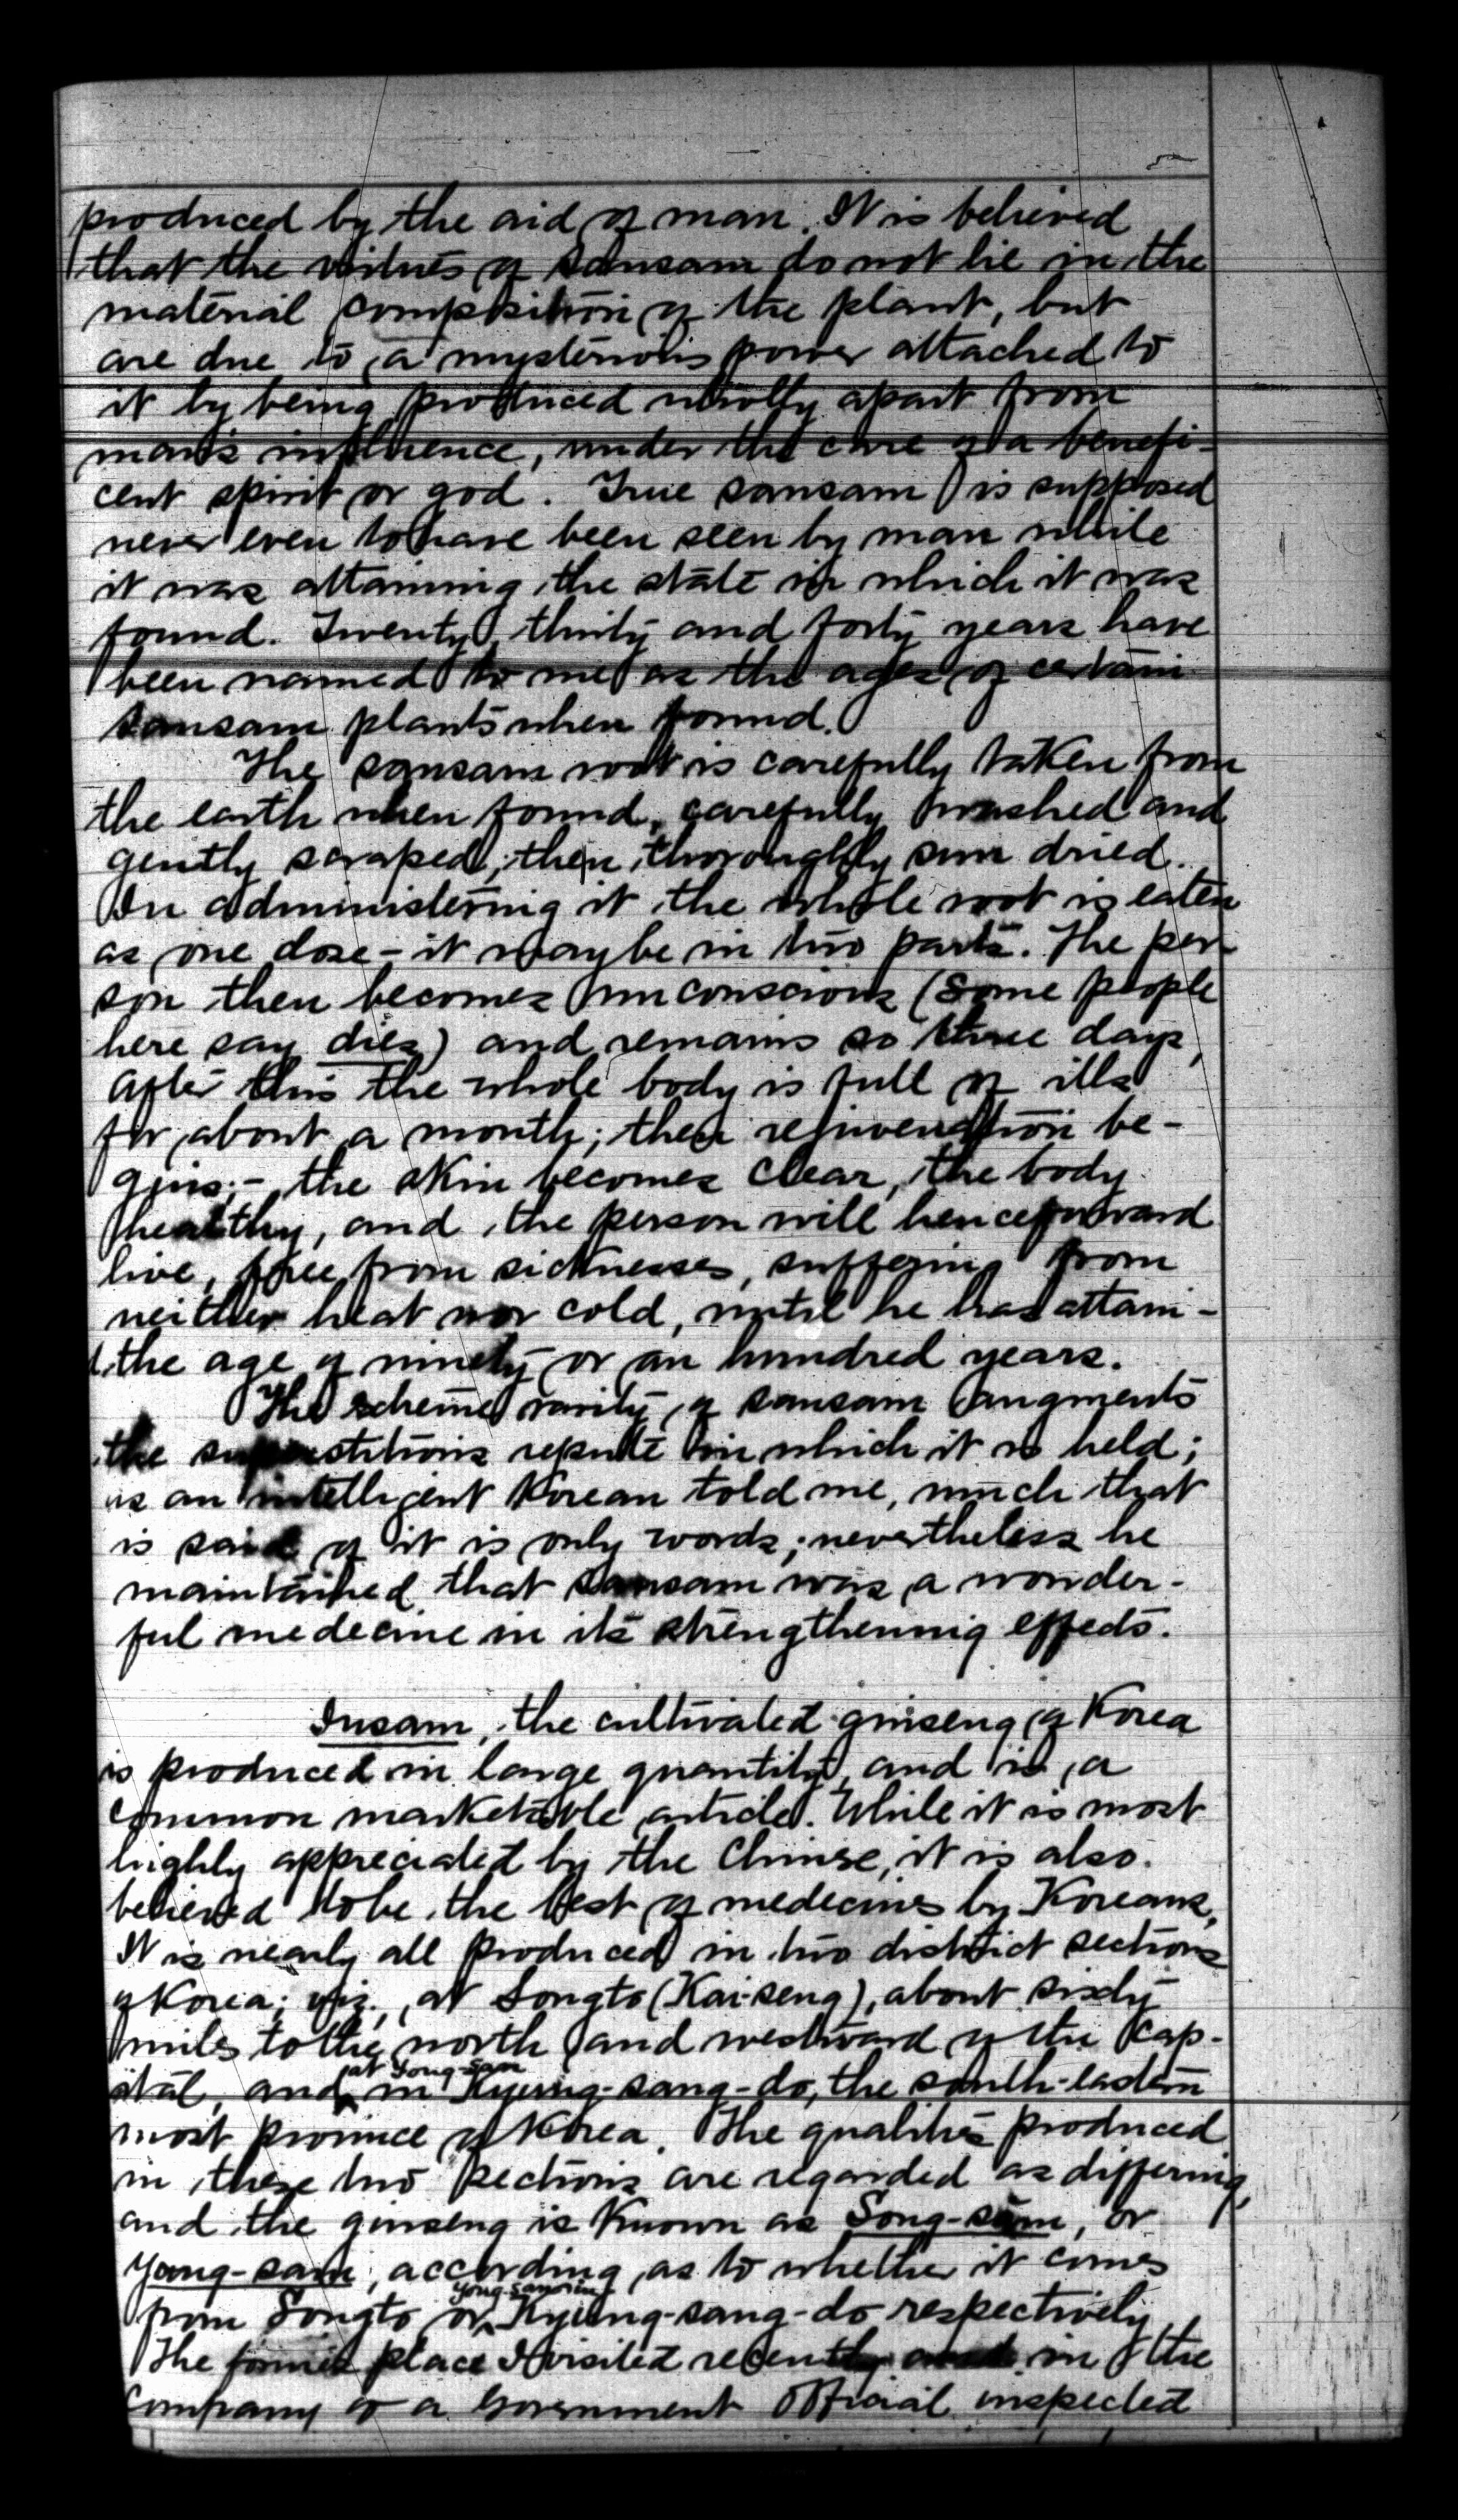 produced by the aid of man. It is believed
that the virtues of sansam do not lie in the
material composition of the plant, but
are due to a mysterious power attached to
it by being produced wholly apart from
man's influence, under the care of a benefi-
cent spirit or god. True sansam is supposed
never even to have been seen by man while
it was attaining the state in which it was
found. Twenty, thirty and forty years have
been named to me as the ages of certain
sansam plants when found.
The sansam root is carefully taken from
the earth when found, carefully washed and
gently scraped, then thoroughly sun dried.
In administering it the whole root is eaten
as one dose - it may be in two parts. The per-
son then becomes unconscious (some people
here say dies) and remains so three days,
after this the whole body is full of ills
for about a month; then rejuvenation be-
gins;- the skin becomes clear, the body
healthy, and the person will henceforward
live, free from sicknesses, suffering from
neither heat nor cold, until he has attain-
d the age of ninety or an hundred years.
The extreme rarity of sansam augments
the superstitious repute in which it is held;
as an intelligent Korean told me, much that
is said of it is only words; nevertheless he
maintained that sansam was a wonder-
ful medecine in its strengthening effects.
Insam, the cultivated ginseng of Korea
is produced in large quantity, and is a
common marketable article. While it is most
highly appreciated by the Chinese, it is also
believed to be the best of medecines by Koreans.
It is nearly all produced in two district sections
of Korea; viz., at Songto (Kai-seng), about sixty
miles to the north and westward of the Cap-
ital, and at Yong-san in Kyung-sang-do, the south-eastern
most province of Korea. The qualities produced
in these two sections are regarded as differing,
and the ginseng is known as Song-sam, or
Yong-sam, according as to whether it comes
from Songto or Yong-san in Kyung-sang-do respectively.
The former place I visited recently in the
company of a Government official inspected